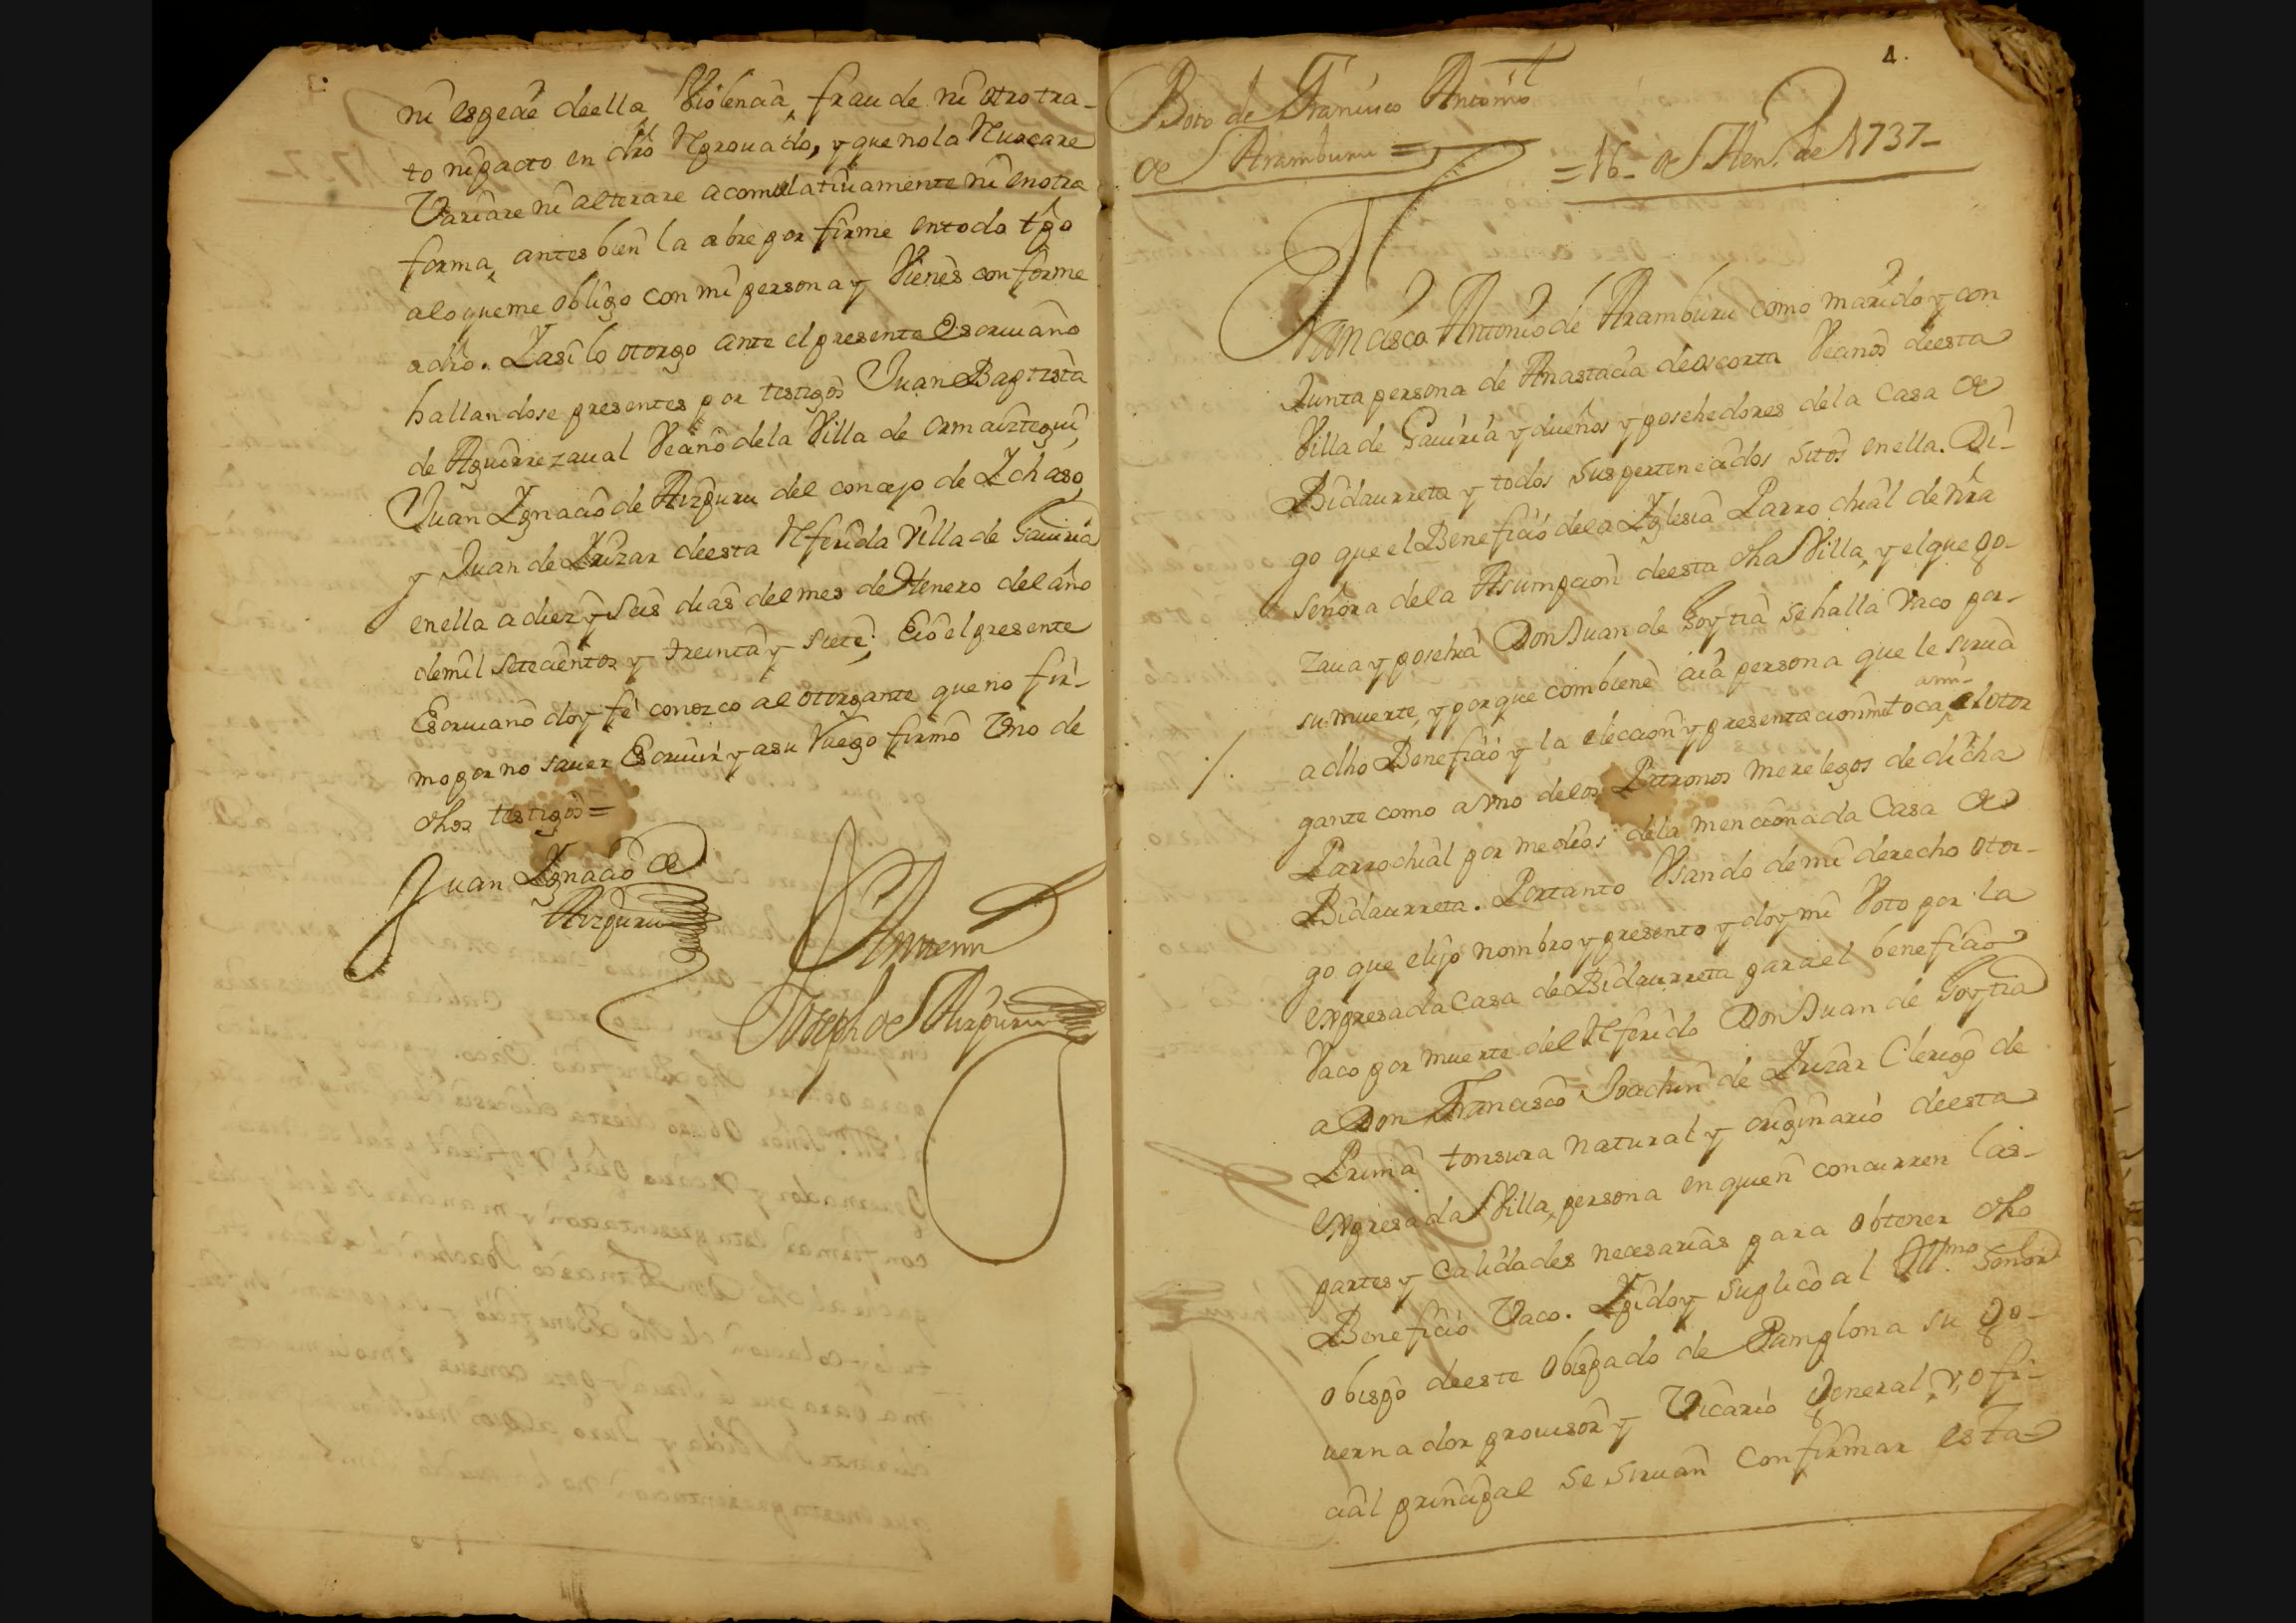 ni especie de ella Violencia, fraude ni otro tra-
to ni pacto en dro Reprouado, y que no la Reuocare
Variare ni alterare acomulatiuamente ni en otra
forma, antes bien la abre por firme en todo tpo
a lo que me obligo con mi persona y Vienes conforme
a dro. Y asi lo otorgo ante el presente Escriuano
hallandose presentes por testigos Juan Baptista
de Aguirrezaual Vecino de la Villa de Ormaiztegui,
Juan Ygnacio de Aizpuru del concejo de Ychaso,
y Juan de Yrizar de esta Referida Villa de Gauiria
en ella a diez y seis dias del mes de Henero del año
de mil setecientos y treinta y siete; E io el presente
Escriuano doy fe conozco al otorgante que no fir-
mo por no sauer Escriuir y a su Ruego firmo Vno de
dhos testigos =
Juan Ygnacio de
Aizpuru
Antemi
Joseph de Aizpuru
4.
Boto de Francisco Antonio
de Aramburu =
= 16 - de Hen. de 1737 -
Francisco Antonio de Aramburu como marido y con
Junta persona de Anastacia de Ascorta Vecinos de esta
Villa de Gauiria y dueños y posehedores de la Casa de
Bidaurreta y todos sus pertenecidos sitos en ella. Di-
go que el Beneficio de la Yglesia Parrochial de nra
señora de la Asumpcion de esta dha Villa, y el que go-
zaua y posehia Don Juan de Goytia se halla Vaco por-
su muerte, y porque combiene aia persona que le sirua
ami-
a dho Beneficio y la eleccion y presentacion toca el otor
gante como a Vno de los Patronos merelegos de dicha
Parrochial por medios de la mencionada Casa de
Bidaurreta. Portanto Vsando de mi derecho otor-
go que elijo nombro y presento y doy mi Voto por la
expresada Casa de Bidaurreta para el beneficio
Vaco por muerte del Referido Don Juan de Goytia
a Don Francisco Joachin de Yrizar Clerigo de
Prima tonsura natural y originario de esta
expresada Villa, persona en quien concurren las-
partes y calidades necesarias para obtener dho
Beneficio Vaco. Y pido y suplico al Illmo Señor
obispo de este obispado de Pamplona su go-
uernador prouisor y Vicario General, y, ofi-
cial principal se siruan confirmar esta